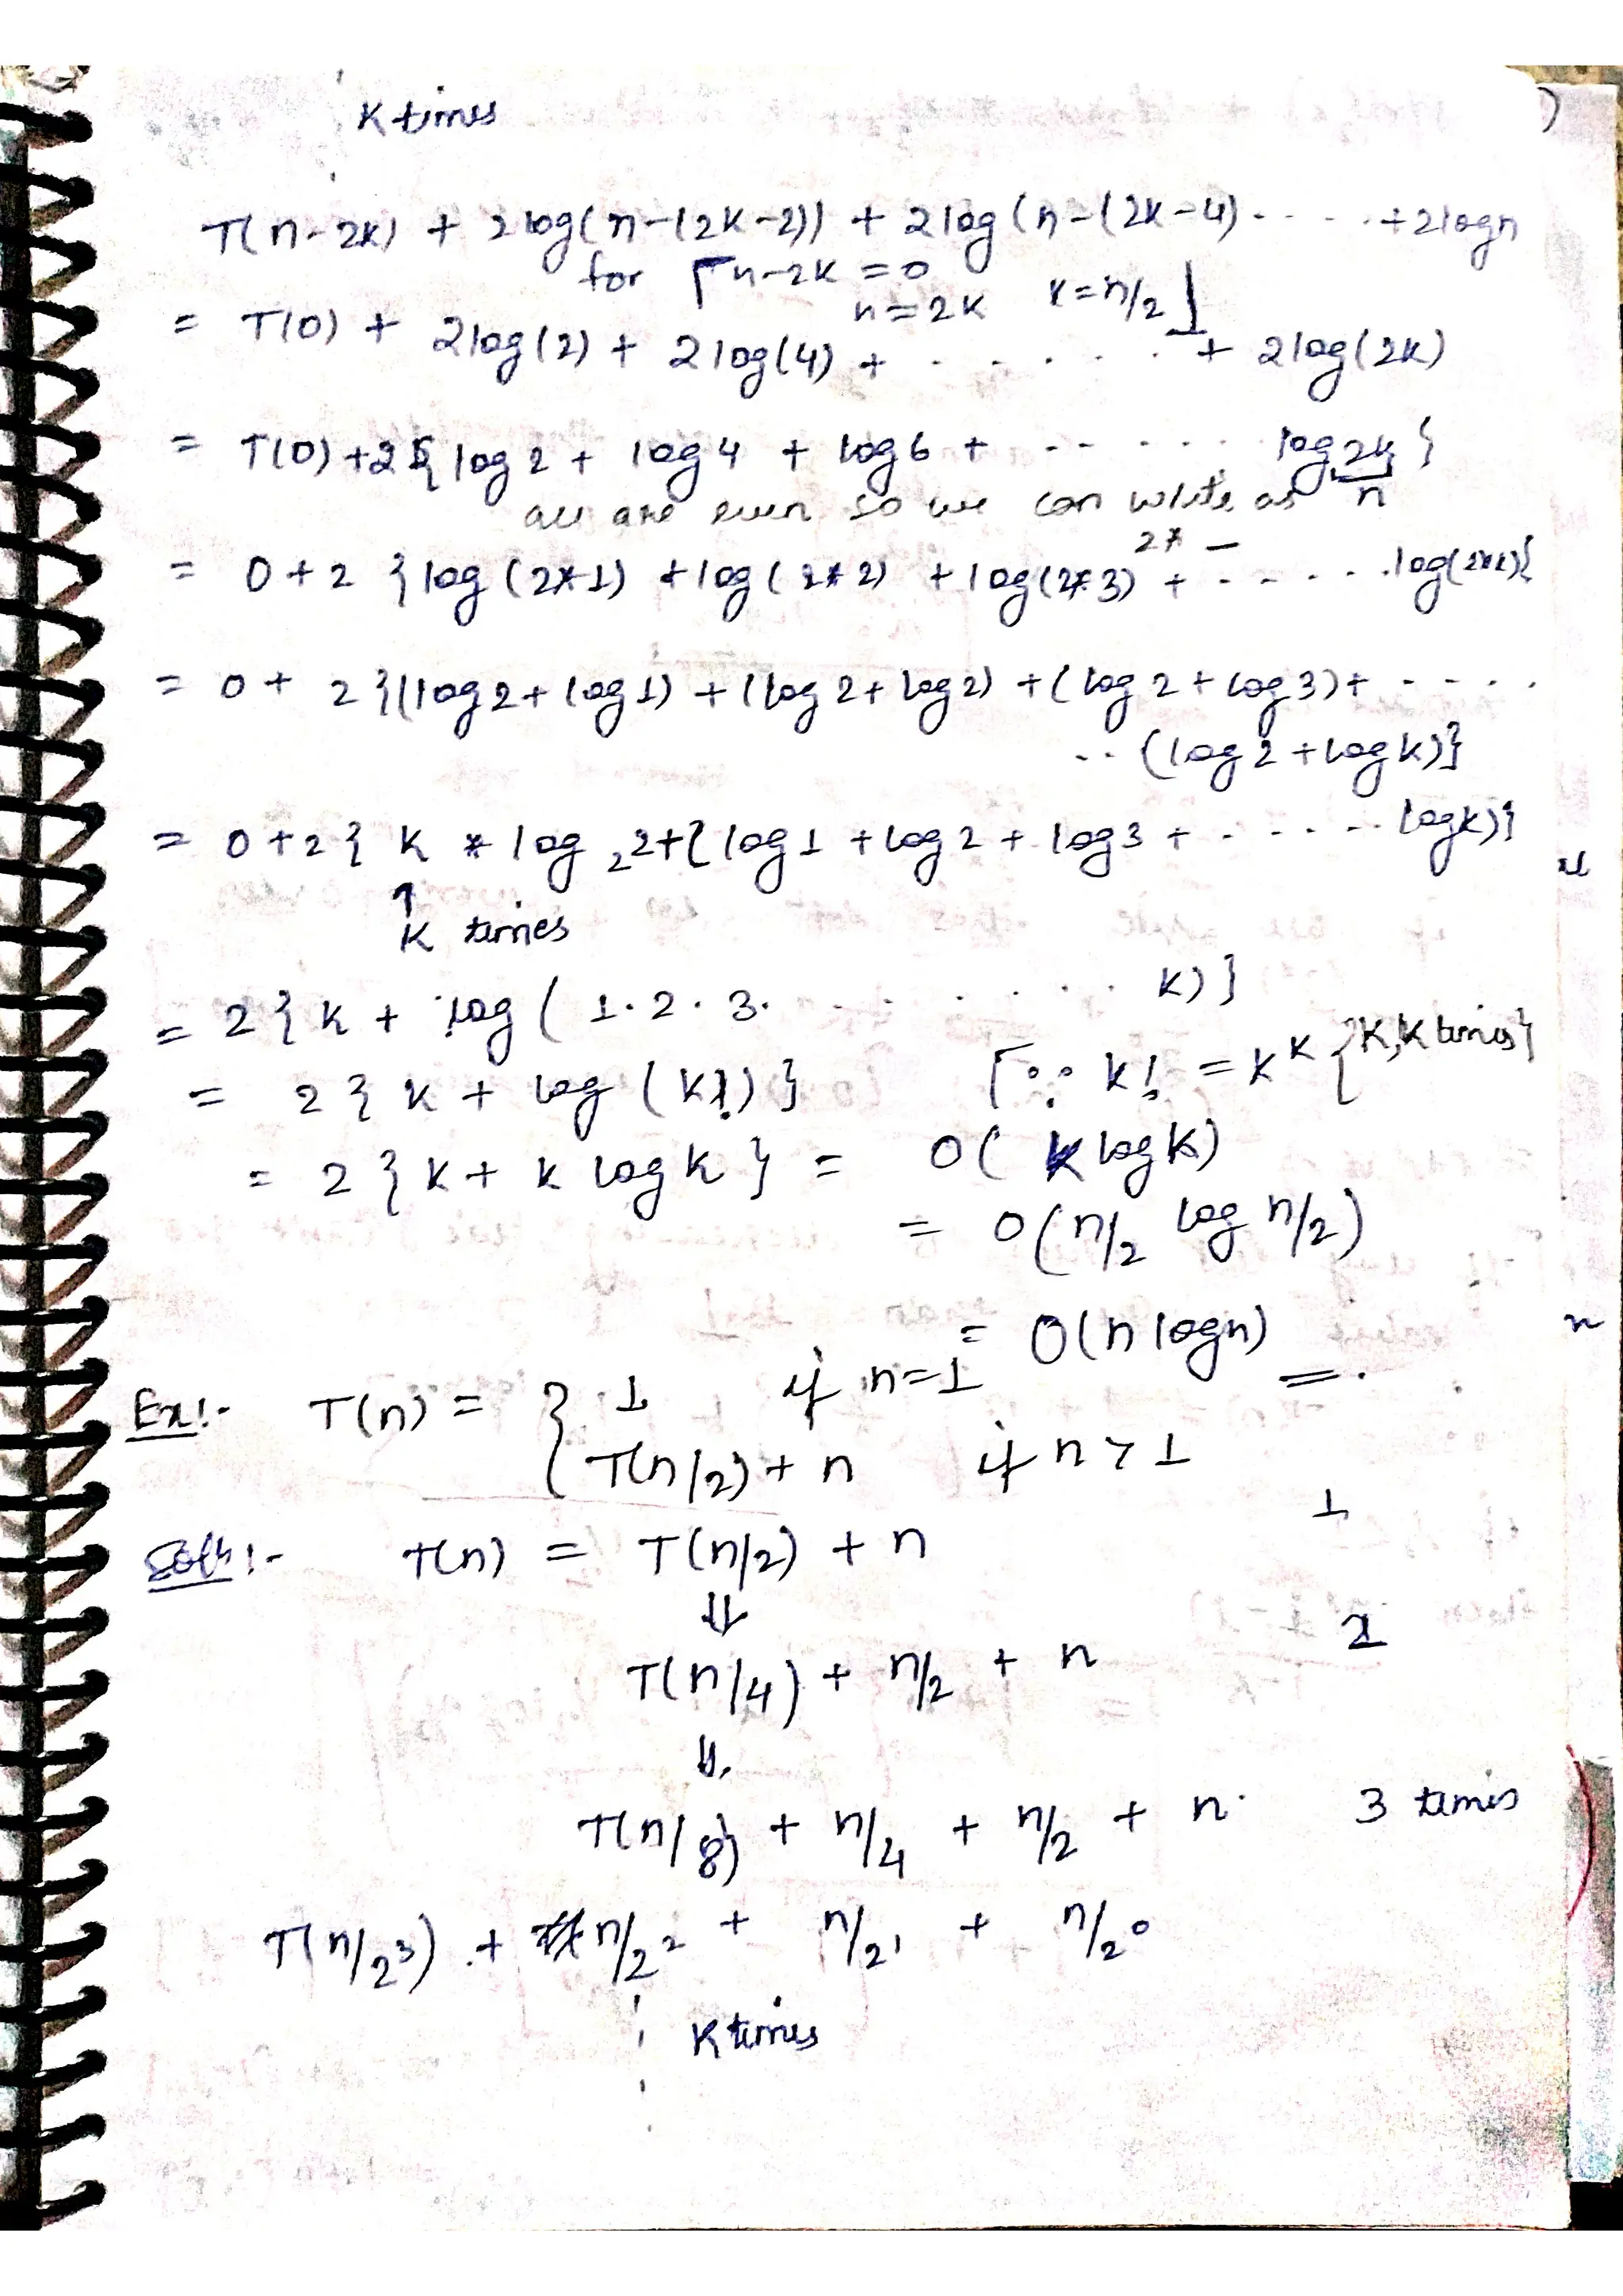 K times
T(n-2k) + 2log(n-(2k-2)) + 2log(n-(2k-4)----- +2logn
for [n-2k=0
n=2k k=n/2]
= T(0) + 2log(2) + 2log(4) + ...... + 2log(2k)
= T(0)+2{log2 + log4 + log6 + ------ log2k}
n
all are even so we can write as
2* -
= 0+2 {log(2*1) +log(2*2) +log(2*3) + -----log(2*k)}
= 0+ 2{(log2+log1) +(log2+log2) +(log2+log3)+ ----
-- (log2+logk)}
= 0+2{ k * log₂2+{log1 +log2 + log3 + ------ logk)}
↑
K times
= 2{k + log(1.2.3. ...... k)}
= 2{k + log(k!)} [∵ k! = k^k {K,K times}
= 2{k+ k logk} = O(k logk)
= O(n/2 log n/2)
= O(n logn)
Ex!- T(n) = { 1 if n=1
T(n/2)+ n if n>1
1
Soln!- T(n) = T(n/2) + n
⇓
2
T(n/4) + n/2 + n
⇓
T(n/8) + n/4 + n/2 + n 3 times
T(n/2³) + n/2² + n/2¹ + n/2⁰
K times